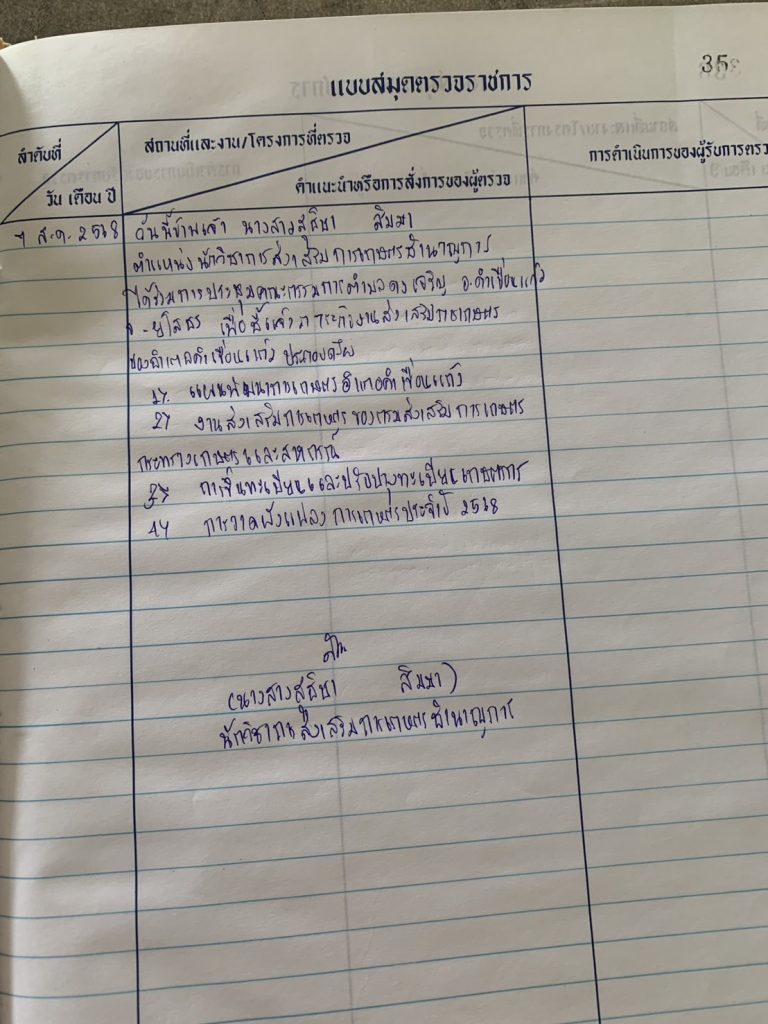 35
แบบสมุดตรวจราชการ
ลำดับที่
วัน เดือน ปี
สถานที่และงาน/โครงการที่ตรวจ
คำแนะนำหรือการสั่งการของผู้ตรวจ
การดำเนินการของผู้รับการตรวจ
7 ส.ค. 2568 วันนี้ข้าพเจ้า นางสาวสุธิษา สิมมา
ตำแหน่ง นักวิชาการส่งเสริมการเกษตรชำนาญการ
ได้ร่วมการประชุมคณะกรรมการตำบลดงเจริญ อ.คำเขื่อนแก้ว
จ.ยโสธร เพื่อชี้แจงภารกิจงานส่งเสริมการเกษตร
ของอำเภอคำเขื่อนแก้ว ประกอบด้วย
1) แผนพัฒนาการเกษตรอำเภอคำเขื่อนแก้ว
2) งานส่งเสริมการเกษตรของกรมส่งเสริมการเกษตร
กระทรวงเกษตรและสหกรณ์
3) การขึ้นทะเบียนและปรับปรุงทะเบียนเกษตรกร
4) การวาดผังแปลงการเกษตรประจำปี 2568
(นางสาวสุธิษา สิมมา)
นักวิชาการส่งเสริมการเกษตรชำนาญการ